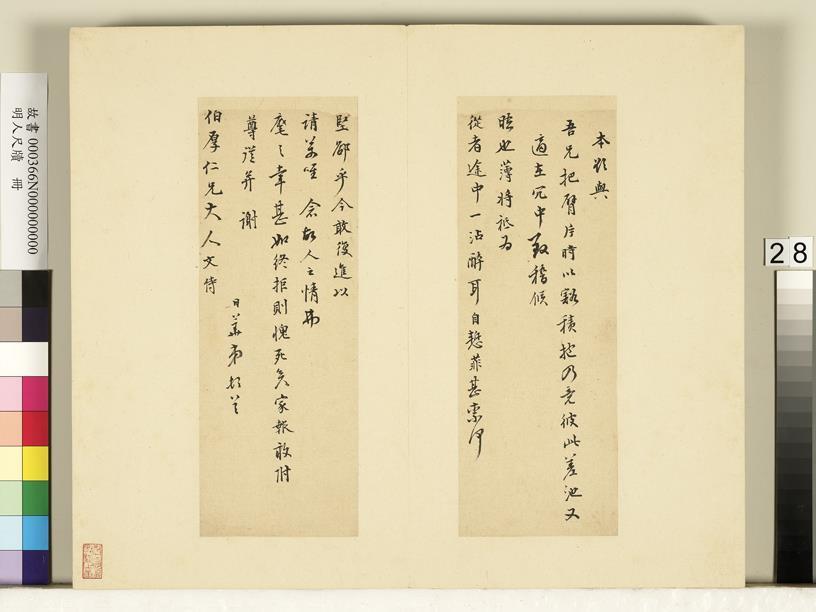 本欲與
吾兄把臂片時以谿積抱乃竟彼此差池又
適在冗中致稽候
薄將祗為
從者途中一沾醉耳自愁菲甚索何
堅卻乎今敢復進以
請萬唯念故人之情弗
麾之幸甚如終拒則愧死矣家報敢附
尊從并謝
伯厚仁兄大人文侍
故書 000366N000000000
明人尺牘 冊
28